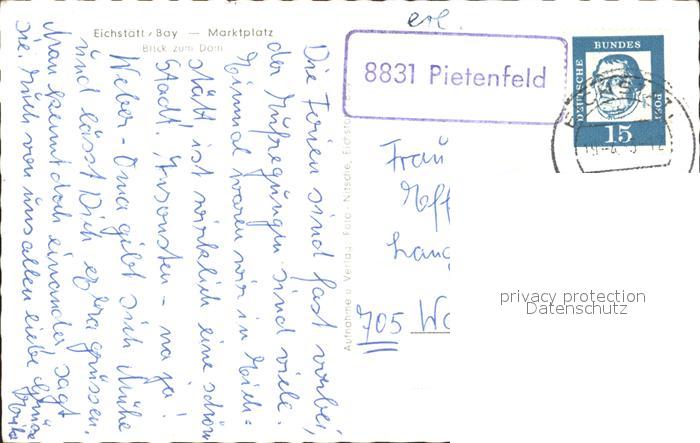 Eichstätt/Bay — Marktplatz
Blick zum Dom
erl.
8831 Pietenfeld
DEUTSCHE
BUNDES
POST
15
Die Ferien sind fast vorbei,
der Aufregungen sind viele.
Einmal waren wir in Eich=
stätt ist wirklich eine schöne
Stadt. Ansonsten - na ja!
Weber-Oma gibt sich Mühe
und lässt Dich extra grüssen.
Man kennt doch einander sagt
sie. Dich von uns allen liebe Grüße
Aufnahme u. Verlag Foto-Nitsche, Eichst
Frau
Lang
705 Wa
privacy protection
Datenschutz